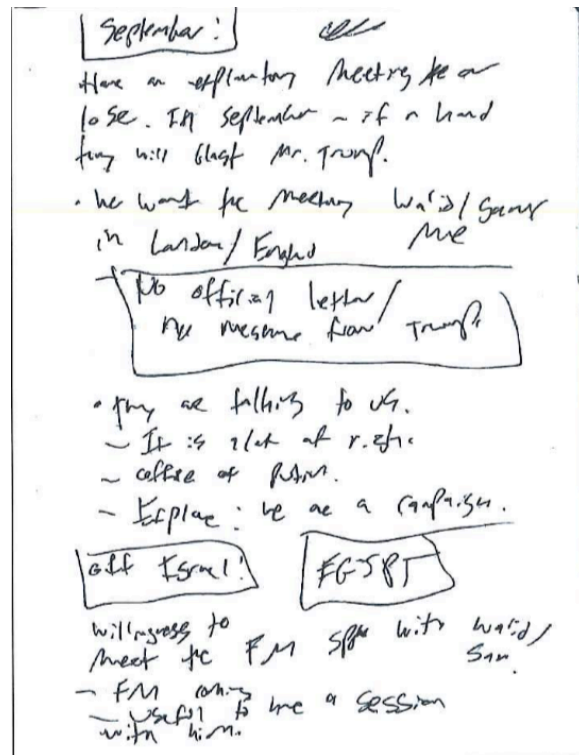 September:
Have an exploratory meeting to or
lose. In September – if a hand
they will blast Mr. Trump.
• We want the meeting Walid/Sam
me
in London/England
No official letter/
no message from Trump.
• They are talking to us.
– It is a lot of risk.
– Office of Putin.
– Explore: we are a campaign.
off Israel!
EGYPT
Willingness to
meet the FM with Walid/
Sam
– FM coming
– Useful to have a session
with him.